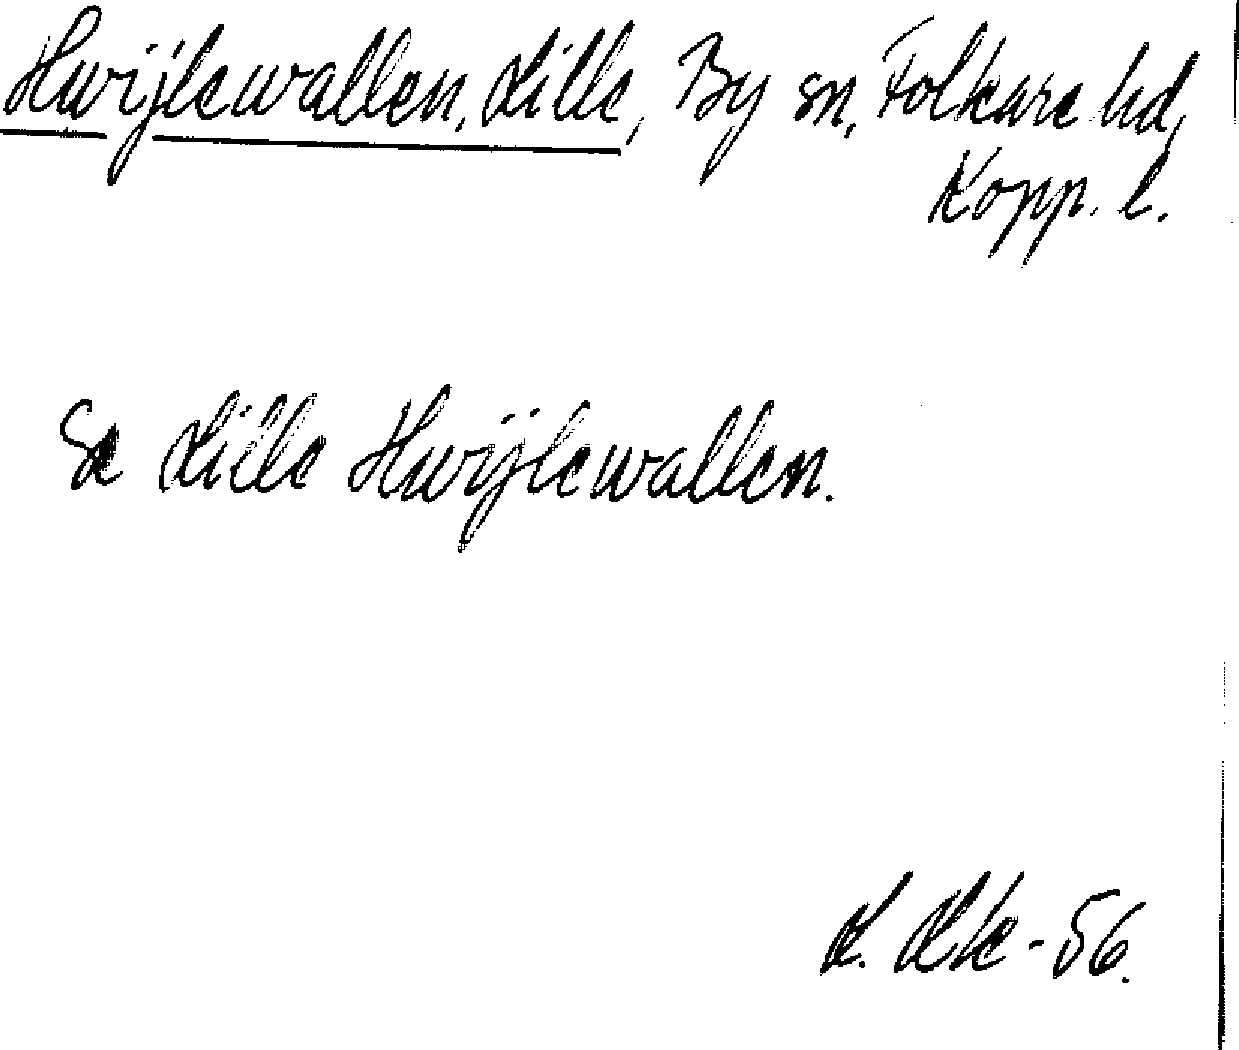 Hwijlewallen, Lille, By sn, Folkare hd,
Kopp. l.
Se Lille Hwijlewallen.
-56.